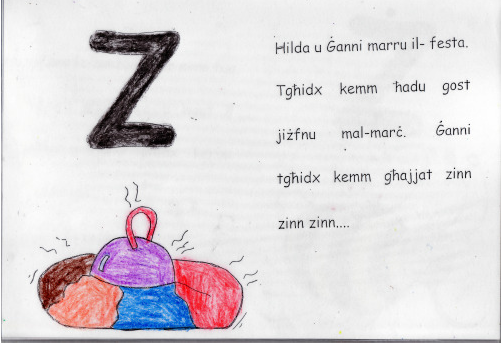 Z
Hilda u Ġanni marru il- festa.
Tgħidx kemm ħadu gost
jiżfnu mal-marċ. Ġanni
tgħidx kemm għajjat zinn
zinn zinn....